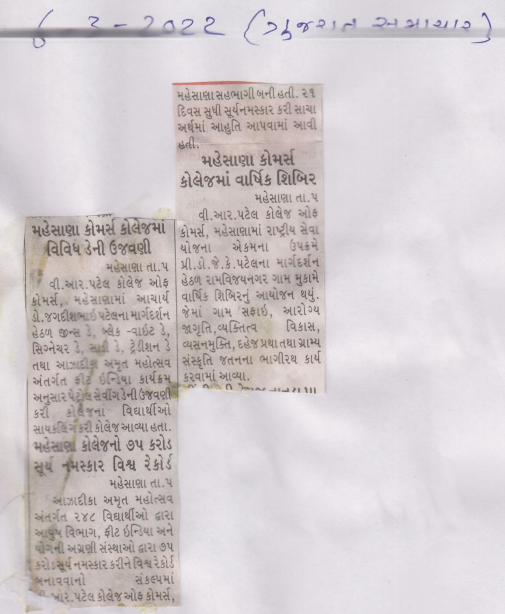 6 3-2022 (ગુજરાત સમાચાર)
મહેસાણા કોમર્સ કોલેજમાં
વિવિધ ડેની ઉજવણી
મહેસાણા તા.૫
વી.આર.પટેલ કોલેજ ઓફ
કોમર્સ, મહેસાણામાં આચાર્ય
ડો.જગદીશભાઈ પટેલના માર્ગદર્શન
હેઠળ જીન્સ ડે, બ્લેક-વાઇટ ડે,
સિગ્નેચર ડે, સાડી ડે, ટ્રેડીશન ડે
તથા આઝાદીકા અમૃત મહોત્સવ
અંતર્ગત ફીટ ઇન્ડિયા કાર્યક્રમ
અનુસાર પેટ્રોલ સેવીંગ ડેની ઉજવણી
કરી કોલેજના વિદ્યાર્થીઓ
સાયકલિંગ કરી કોલેજ આવ્યા હતા.
મહેસાણા કોલેજનો ૭૫ કરોડ
સૂર્ય નમસ્કાર વિશ્વ રેકોર્ડ
મહેસાણા તા.૫
આઝાદીકા અમૃત મહોત્સવ
અંતર્ગત ૨૪૮ વિદ્યાર્થીઓ દ્વારા
આયુષ વિભાગ, ફીટ ઇન્ડિયા અને
યોગની અગ્રણી સંસ્થાઓ દ્વારા ૭૫
કરોડ સૂર્ય નમસ્કાર કરીને વિશ્વ રેકોર્ડ
બનાવવાનો સંકલ્પમાં
વી.આર.પટેલ કોલેજ ઓફ કોમર્સ,
મહેસાણા સહભાગી બની હતી. ૨૧
દિવસ સુધી સૂર્યનમસ્કાર કરી સાચા
અર્થમાં આહુતિ આપવામાં આવી
હતી.
મહેસાણા કોમર્સ
કોલેજમાં વાર્ષિક શિબિર
મહેસાણા તા.૫
વી.આર.પટેલ કોલેજ ઓફ
કોમર્સ, મહેસાણામાં રાષ્ટ્રીય સેવા
યોજના એકમના ઉપક્રમે
પ્રી.ડો.જે.કે.પટેલના માર્ગદર્શન
હેઠળ રામવિજયનગર ગામ મુકામે
વાર્ષિક શિબિરનું આયોજન થયું.
જેમાં ગામ સફાઇ, આરોગ્ય
જાગૃતિ,વ્યક્તિત્વ વિકાસ,
વ્યસનમુક્તિ, દહેજ પ્રથા તથા ગ્રામ્ય
સંસ્કૃતિ જતનના ભાગીરથ કાર્ય
કરવામાં આવ્યા.